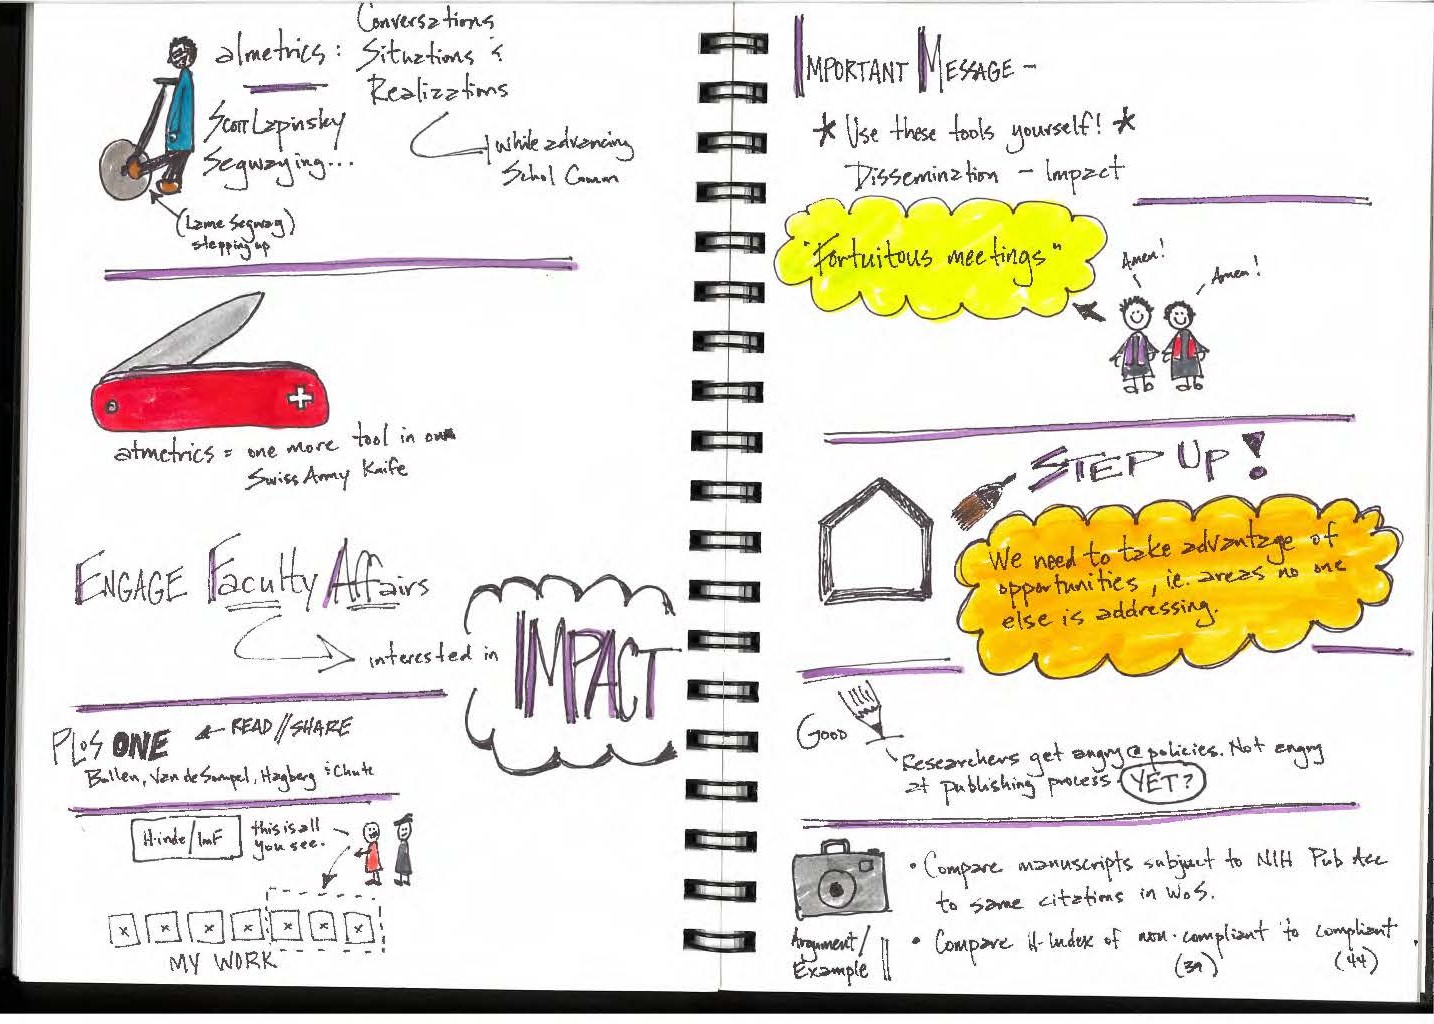 almetrics:
Conversations
Situations &
Realizations
while advancing
Schol Comm
Scott Lapinsky
Segwaying...
(Lame Segway)
stepping up
atmetrics = one more tool in our
Swiss Army Knife
ENGAGE Faculty Affairs
interested in
IMPACT
PLOS ONE ← READ//SHARE
Bollen, Van de Sompel, Hagberg & Chute
H-inde/ImF
this is all
you see.
x x x x x x x
MY WORK
IMPORTANT MESSAGE -
* Use these tools yourself! *
Dissemination - Impact
"Fortuitous meetings"
Amen!
Amen!
STEP UP!
We need to take advantage of
opportunities, ie. areas no one
else is addressing.
GOOD
Researchers get angry @ policies. Not angry
at publishing process. YET?
• Compare manuscripts subject to NIH Pub Acc
to same citations in WoS.
Argument/
Example
• Compare H-Index of non-compliant to compliant.
(39) (44)